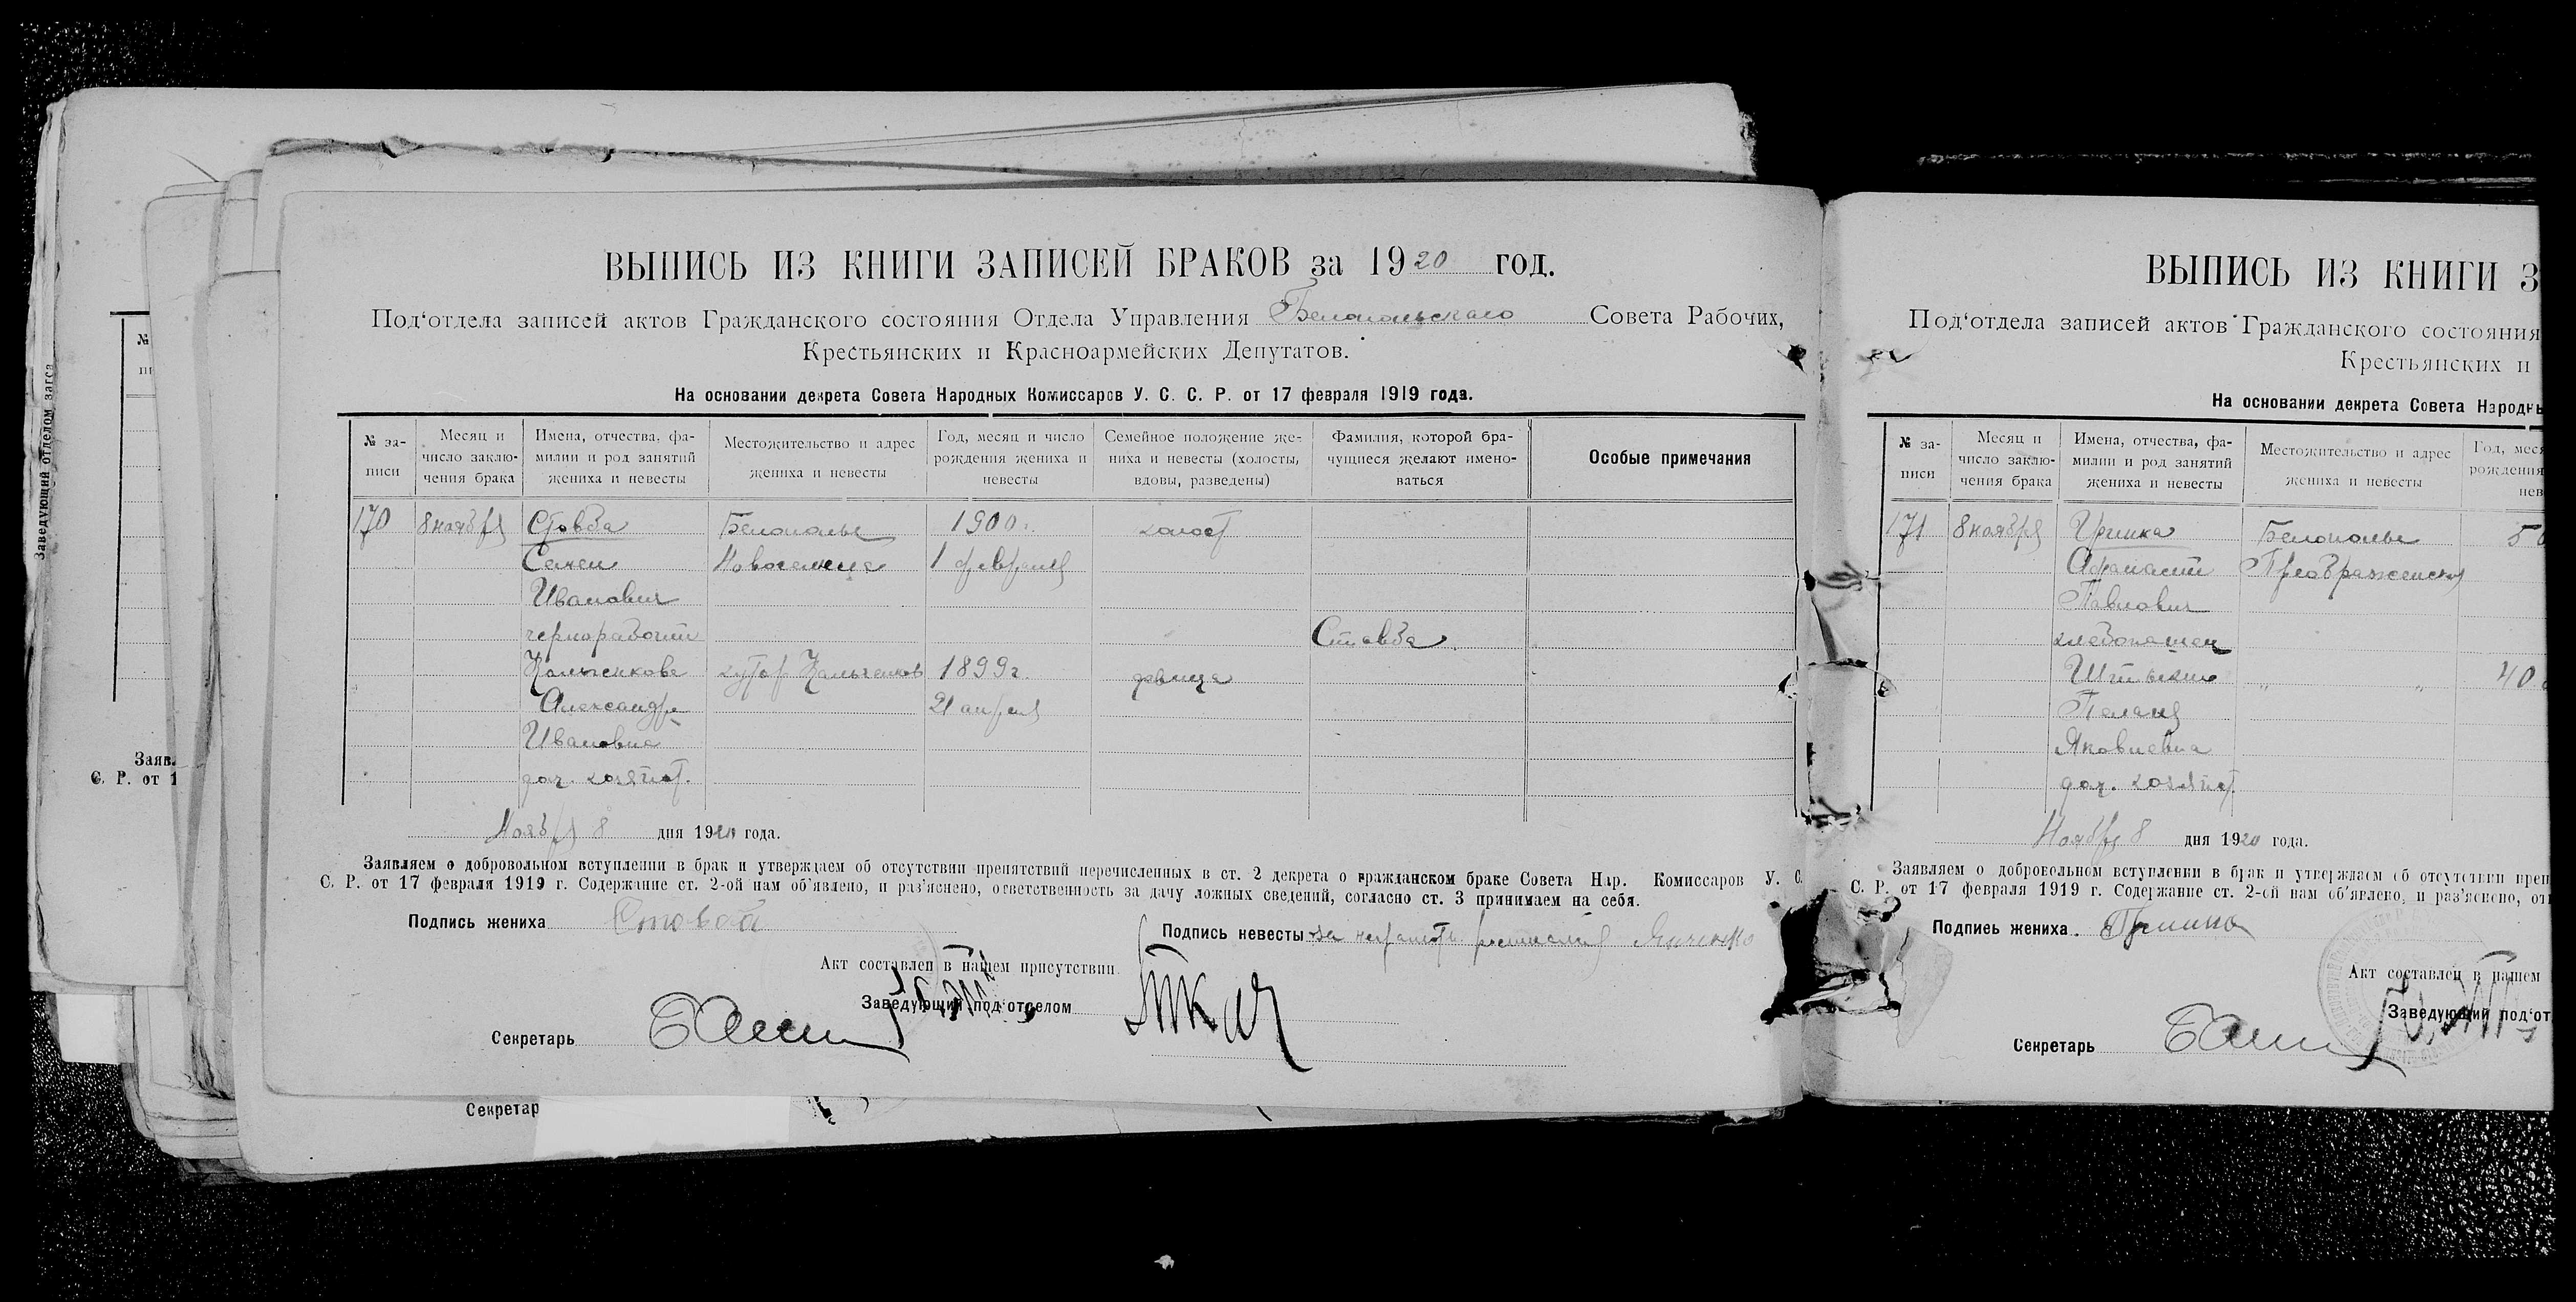 ВЫПИСЬ ИЗ КНИГИ ЗАПИСЕЙ БРАКОВ за 1920 год.
Под‘отдела записей актов Гражданского состояния Отдела Управления Белопольскаго Совета Рабочих,
Крестьянских и Красноармейских Депутатов.
На основании декрета Совета Народных Комиссаров У. С. С. Р. от 17 февраля 1919 года.
№ за-
писи
Месяц и
число заклю-
чения брака
Имена, отчества, фа-
милии и род занятий
жениха и невесты
Местожительство и адрес
жениха и невесты
Год, месяц и число
рождения жениха и
невесты
Семейное положение же-
ниха и невесты (холосты,
вдовы, разведены)
Фамилия, которой бра-
чущиеся желают имено-
ваться
Особые примечания
170 8 ноября Стовба Белополье 1900 г. холост
Семен 1 февраля
Иванович
чернорабочий Стовба
хутор 1899 г. девица
Александра 21 апреля
Ивановна
дом. хозяйст.
Ноября 8 дня 1920 года.
Заявляем о добровольном вступлении в брак и утверждаем об отсутствии препятствий перечисленных в ст. 2 декрета о гражданском браке Совета Нар. Комиссаров У. С.
С. Р. от 17 февраля 1919 г. Содержание ст. 2-ой нам об‘явлено, и раз‘яснено, ответственность за дачу ложных сведений, согласно ст. 3 принимаем на себя.
Подпись жениха Стовба
Подпись невесты за неграмотн.
Акт составлен в нашем присутствии.
Заведующий под‘отделом
Секретарь
Секретар
Заведующий отделом загса
№
Заяв.
С. Р. от 1
ВЫПИСЬ ИЗ КНИГИ З
Под‘отдела записей актов Гражданского состояния
Крестьянских и
На основании декрета Совета Народн
№ за-
писи
Месяц и
число заклю-
чения брака
Имена, отчества, фа-
милии и род занятий
жениха и невесты
Местожительство и адрес
жениха и невесты
Год, меся
рождения
нев
171 8 ноября Белополье 5
Афанасий
Павлович
хлебопашец
" " 40
Яковлевна
дом. хозяйст.
Ноября 8 дня 1920 года.
Заявляем о добровольном вступлении в брак и утверждаем об отсутствии преп
С. Р. от 17 февраля 1919 г. Содержание ст. 2-ой нам об‘явлено, и раз‘яснено, от
Подпись жениха.
Акт составлен в нашем
Заведующий под‘от
Секретарь